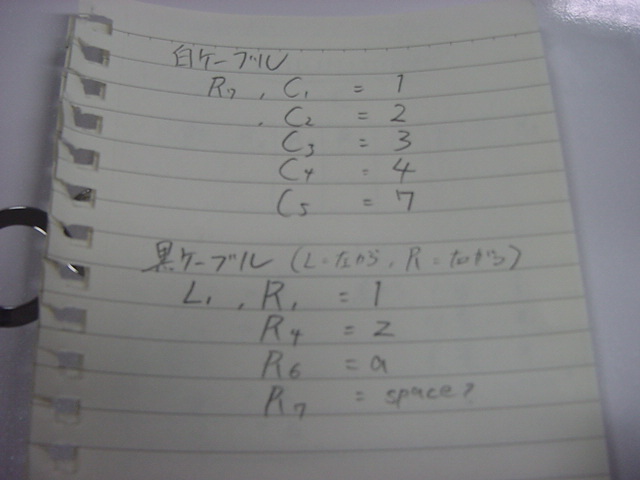 白ケーブル
R7, C1 = 1
, C2 = 2
C3 = 3
C4 = 4
C5 = 7
黒ケーブル (L=左から, R=右から)
L1, R1 = 1
R4 = z
R6 = a
R7 = space?